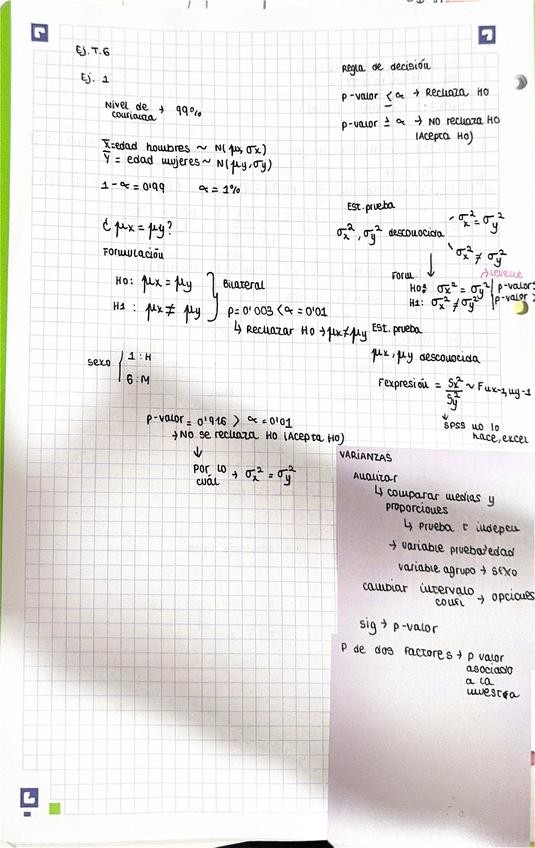 Ej. T. 6
Ej. 1
Nivel de confianza → 99%
X̄ = edad hombres ~ N(μx, σx)
Ȳ = edad mujeres ~ N(μy, σy)
1 - α = 0'99 α = 1%
¿ μx = μy?
Formulación
H0: μx = μy
H1: μx ≠ μy
Bilateral
p = 0'003 < α = 0'01
↳ Rechazar H0 → μx ≠ μy
sexo
1 : H
6 : M
p-valor = 0'916 > α = 0'01
→ No se rechaza H0 (Acepta H0)
↓
Por lo cuál → σx² = σy²
Regla de decisión
p-valor ≤ α → Rechaza H0
p-valor ≥ α → NO rechaza H0
(acepta H0)
Est. prueba
σx², σy² desconocida
σx² = σy²
σx² ≠ σy²
Form
→ levene
H0: σx² = σy² | p-valor
H1: σx² ≠ σy² | p-valor >
Est. prueba
μx, μy desconocida
Fexpresión = Sx²/Sy² ~ F nx-1, ny-1
↓
SPSS no lo
hace, excel
VARIANZAS
Analizar
↳ comparar medias y
proporciones
↳ prueba t indepen
→ variable prueba → edad
variable agrupo → sexo
cambiar intervalo
conf → opciones
sig → p-valor
P de dos factores → p valor
asociado
a la
muestra